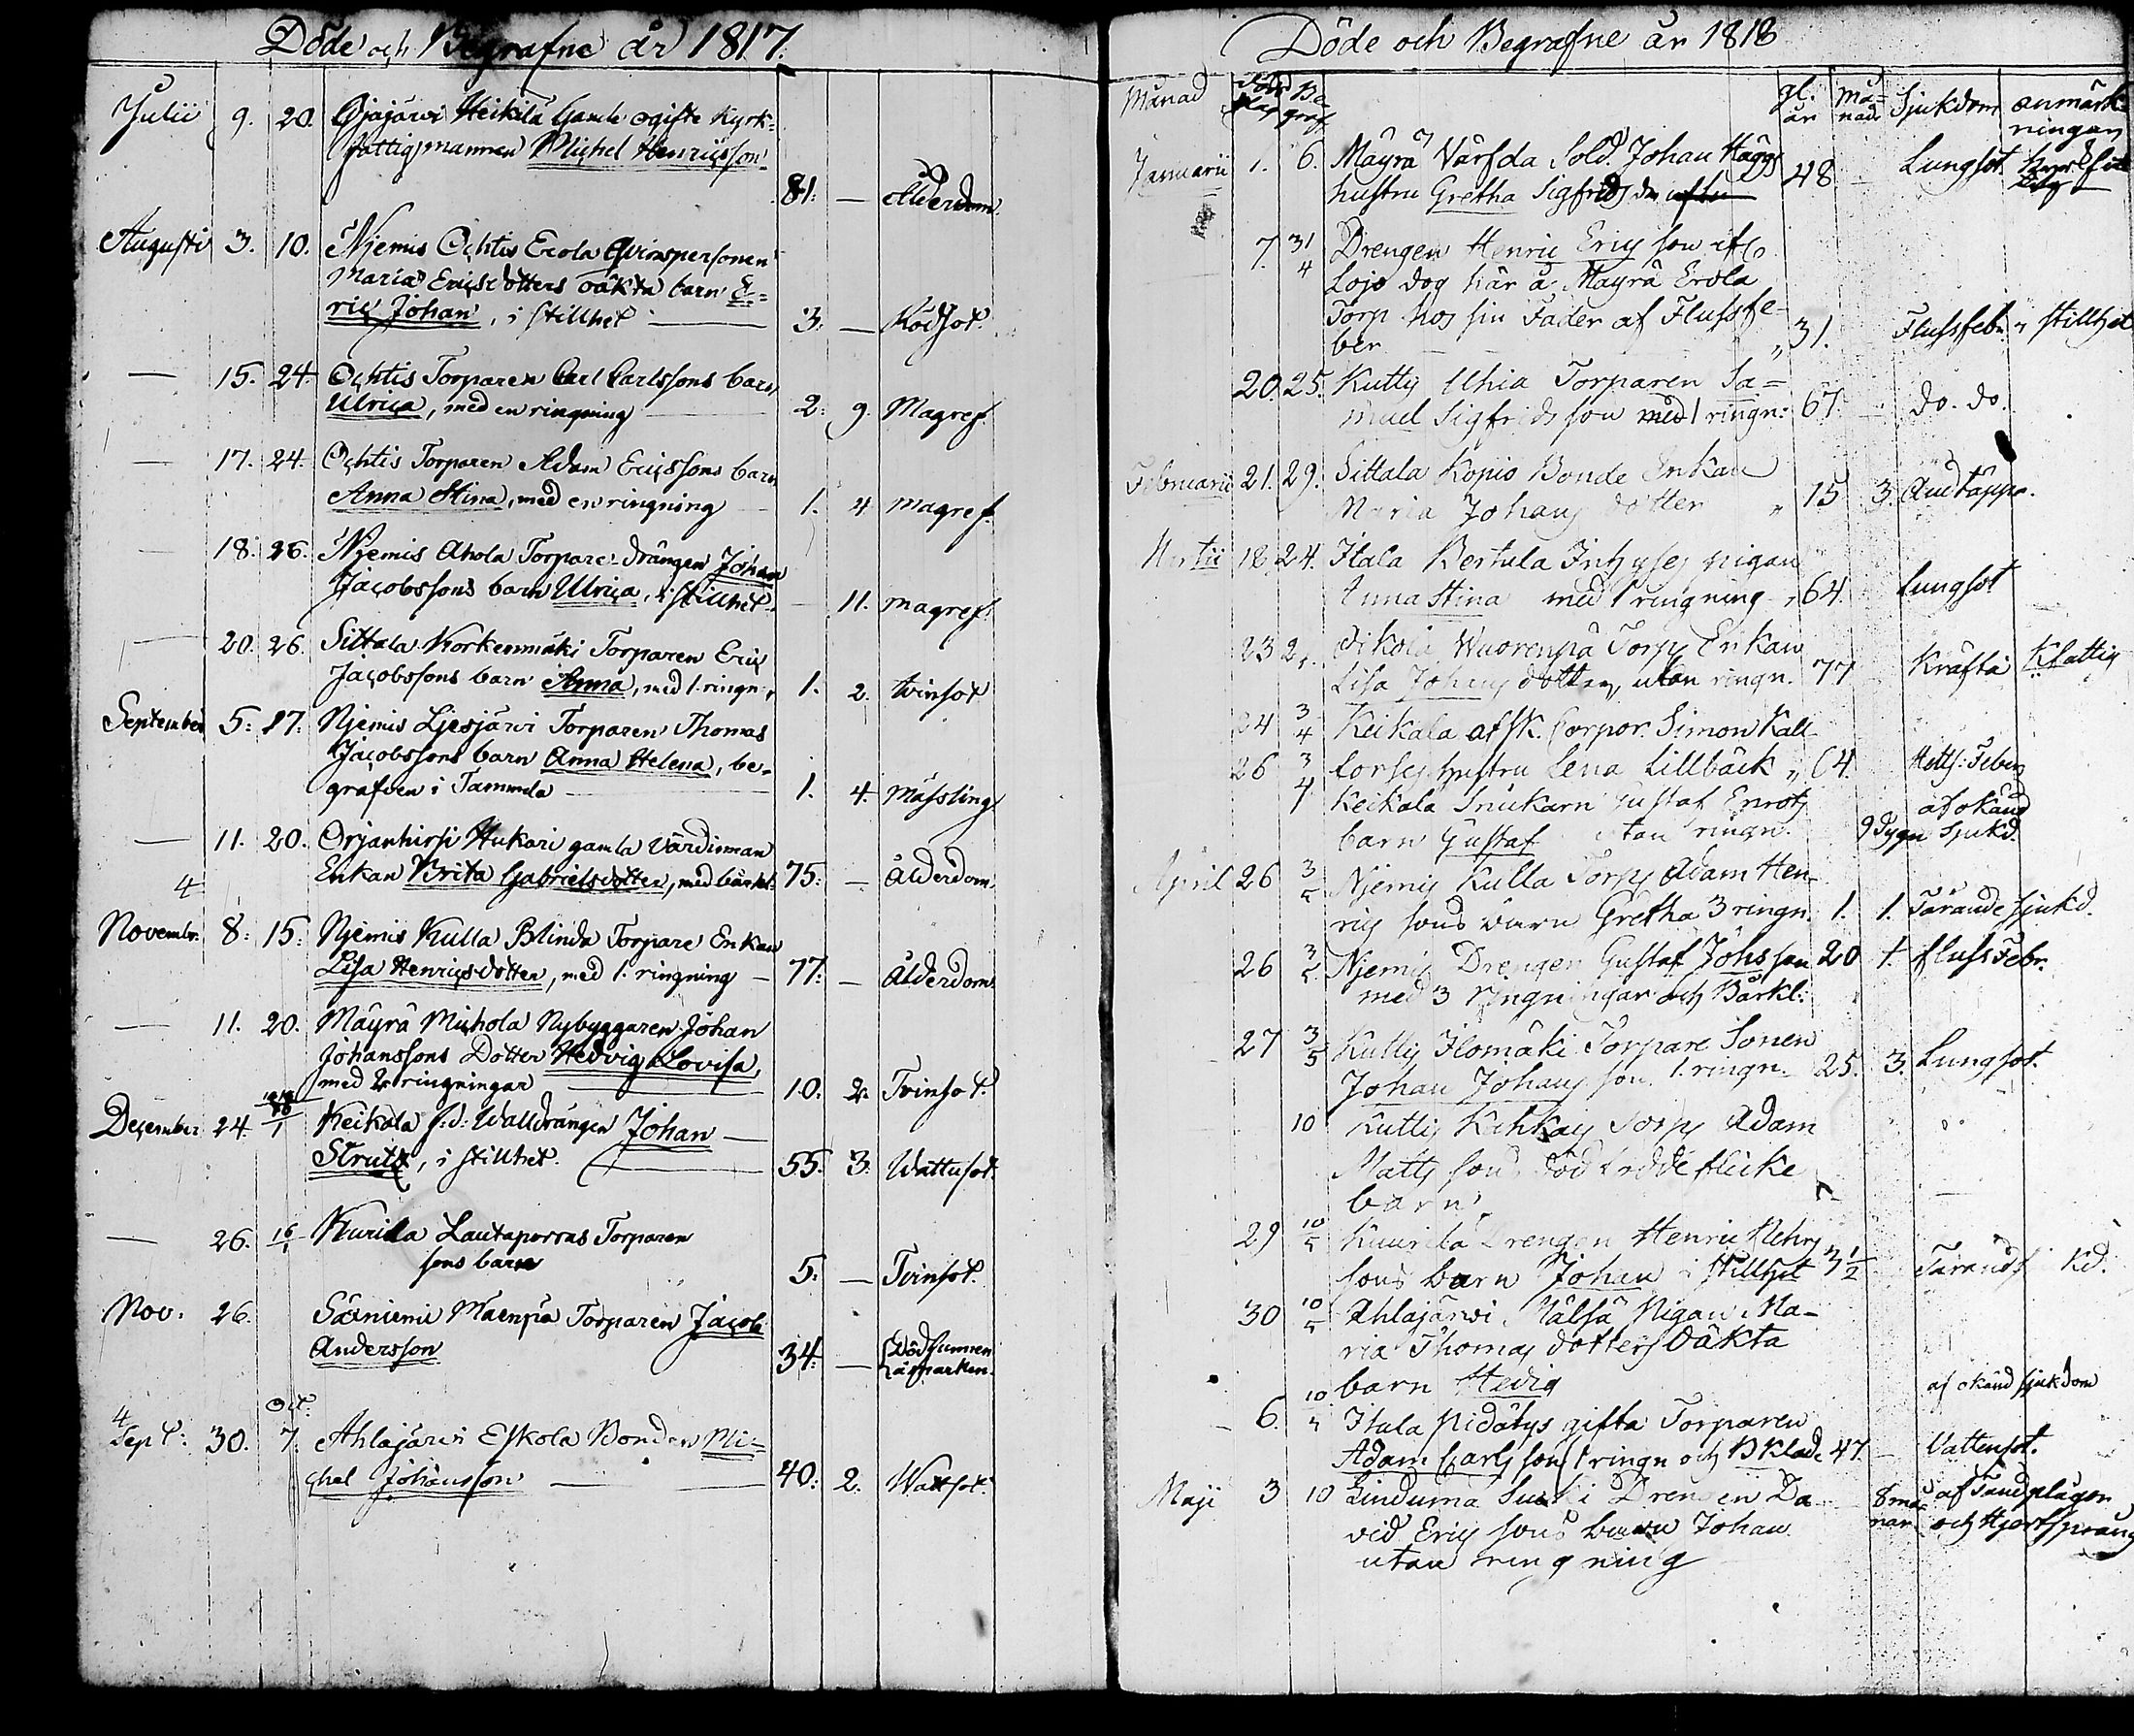 Döde och Begrafne år 1817.
Julii 9. 20. Ojajärvi Heikilä Gamle ogifte kyrk-
fattigmannen Michel Henricsson 81: — Ålderdom
Augusti 3. 10. Njemis Ochtis Erola Qvinspersonen
Maria Ericsdotters oäkta barn E-
ric Johan, i stillhet 3: — Rödsot.
— 15. 24. Ochtis Torparen Carl Carlssons barn
Ulrica, med en ringning 2: 9. Magref.
— 17. 24. Ochtis Torparen Adam Ericssons barn
Anna Stina, med en ringning 1. 4. magref.
— 18. 26. Njemis Ahola Torpare drängen Johan
Jacobssons barn Ulrica, i stillhet — 11. magref.
— 20. 26. Sittala Korkenmäki Torparen Eric
Jacobssons barn Anna, med 1. ringn. 1. 2. tvinsot
September 5: 17: Njemis Ljesjärvi Torparen Thomas
Jacobssons barn Anna Helena, be-
grafven i Tammela 1. 4. mässling
— 11. 20. Orjanhirsi Hukari gamla Värdinnan
4 Enkan Brita Gabrielsdotter, med bårkl: 75: — Ålderdom
Novembr. 8: 15: Njemis Kulla Blinda Torpare Enkan
Lisa Henricsdotter, med 1. ringning — 77: — Ålderdom
— 11. 20. Mäyrä Michola Nybyggaren Johan
Johanssons Dotter Hedvig Lovisa,
med 2 ringningar 10: 2. Tvinsot.
December 24. Keikala f.d. Walldrängen Johan —
Strutz, i stillhet. 55. 3. Wattusot.
— 26. 16/1 Kurila Lautaporras Torparen
sons barn 5: — Tvinsot.
Nov: 26. Särniemi Mäenpää Torparen Jacob
Andersson 34: — Död funnen
å marken.
4 Oct:
Sept: 30. 7. Ahlajärvi Eskola Bonden Mi-
chel Johansson 40: 2. Wattsot.
Döde och Begrafne år 1818
Månad Död dag Be graf gl. år må- nad Sjukdom anmärk-
ningar
Januarii 1. 6. Mäyrä Vårfda Sold. Johan Häggs
hustru Gretha Sigfrids dr 48 Lungsot
7. 31/4 Drengen Henric Erics son ifr.
Lojo dog här å Mäyrä Erola
Torp hos sin Fader af Flussfe-
ber 31. Flussfebr i stillhet
20. 25. Kutty Uhia Torparen Sa-
muel Sigfrids son med 1 ringn: 67. — do. do.
Februarii 21. 29. Sittala Kopio Bonde Enkan
Maria Johans dotter 75 3. Andtäppa.
Martii 18 24. Itala Bertula Inhyses pigan
Anna Stina med 1 ringning 64. Lungsot
23 Wuorenpä Torps Enkan
Lisa Johans dotter, utan ringn. 77 Kräfta Kfattig
24 3/4 Keikala afsk. Corpor. Simon Kall-
26 3/4 forses hustru Lena Lillbäck 64. Hetts: Feber
Keikala Snickarn Gustaf Enrots af okänd
barn Gustaf utan ringn. 9 Dygn Sjukd.
April 26 3/5 Njemis Kulla Torps Adam Hen-
rics sons barn Gretha 3 ringn. 1. 1. Tärande sjukd.
26 3/5 Njemis Drengen Gustaf Johs son 20 1. flussfebr.
med 3 ringningar och Bårkl:
27 3/5 Kutty Ilomäki Torpare Sonen
Johan Johans son. 1. ringn. 25. 3. Lungsot.
10 Kutty Torps Adam
Matts sons död födde flicke
barn.
29 10/5 Kuurila Drengen Henric Hehrs
sons barn Johan i stillhet 3 1/2 Tärands kd.
30 10/5 Ahlajärvi Mälsä Pigan Ma-
ria Thomas dotters Oäkta
barn Hedvig af okänd sjukdom
6. 10 Itala gifta Torparen
Adam Carls son 1 ringn och BKläde 47 — Vattusot.
Maji 3 10 Linduma Suski Drengen Da- 8 må- af Tandplågor
vid Erics sons barn Johan nar och Hjertsprång
utan ringning